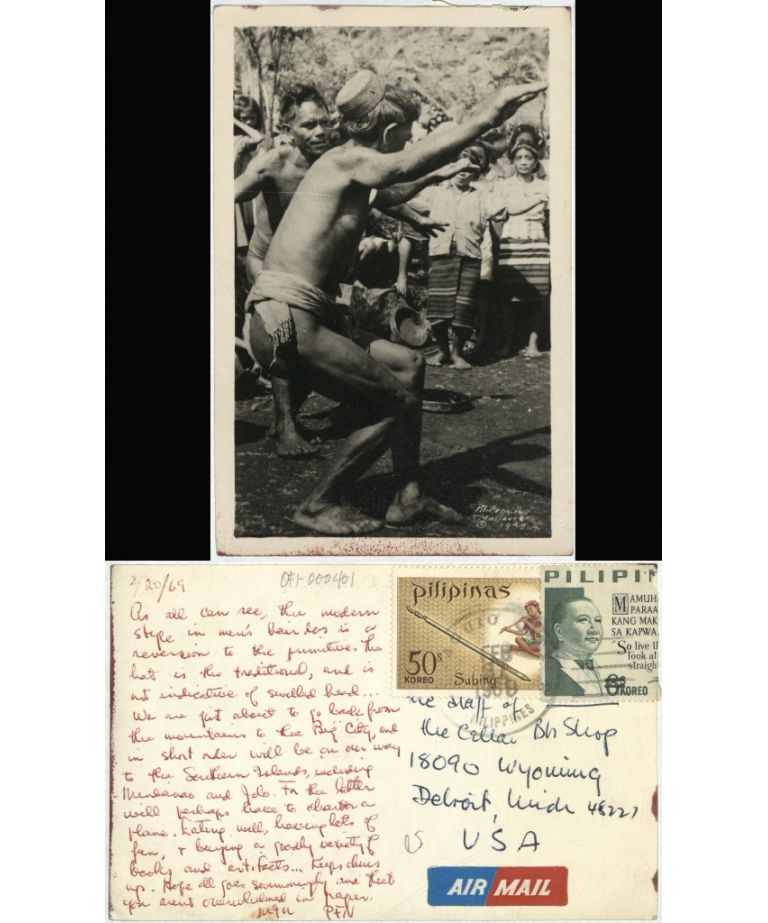 © 1940
2/20/69
OFI-000401
As all can see, the modern
style in men's hairdos is a
reversion to the primitive. The
hat is the traditional, and is
not indicative of swelled head...
We are just about to go back from
the mountains to the Big City, and
in short order will be on our way
to the Southern Islands, including
Mindanao and Jolo. For the latter
will perhaps have to charter a
plane. Eating well, having lots of
fun, + buying a goodly variety of
books and artifacts... Keep chins
up. Hope all goes swimmingly and that
you aren't overwhelmed in paper.
PFN
pilipinas
50s
KOREO
Subing
PILIPIN
MAMUH
PARAA
KANG MAK
SA KAPWA
"So live th
look at
straigh
6s KOREO
FEB
PILIPPINES
The Staff of
the Cellar Bk Shop
18090 Wyoming
Detroit, Mich 48221
USA
AIR MAIL